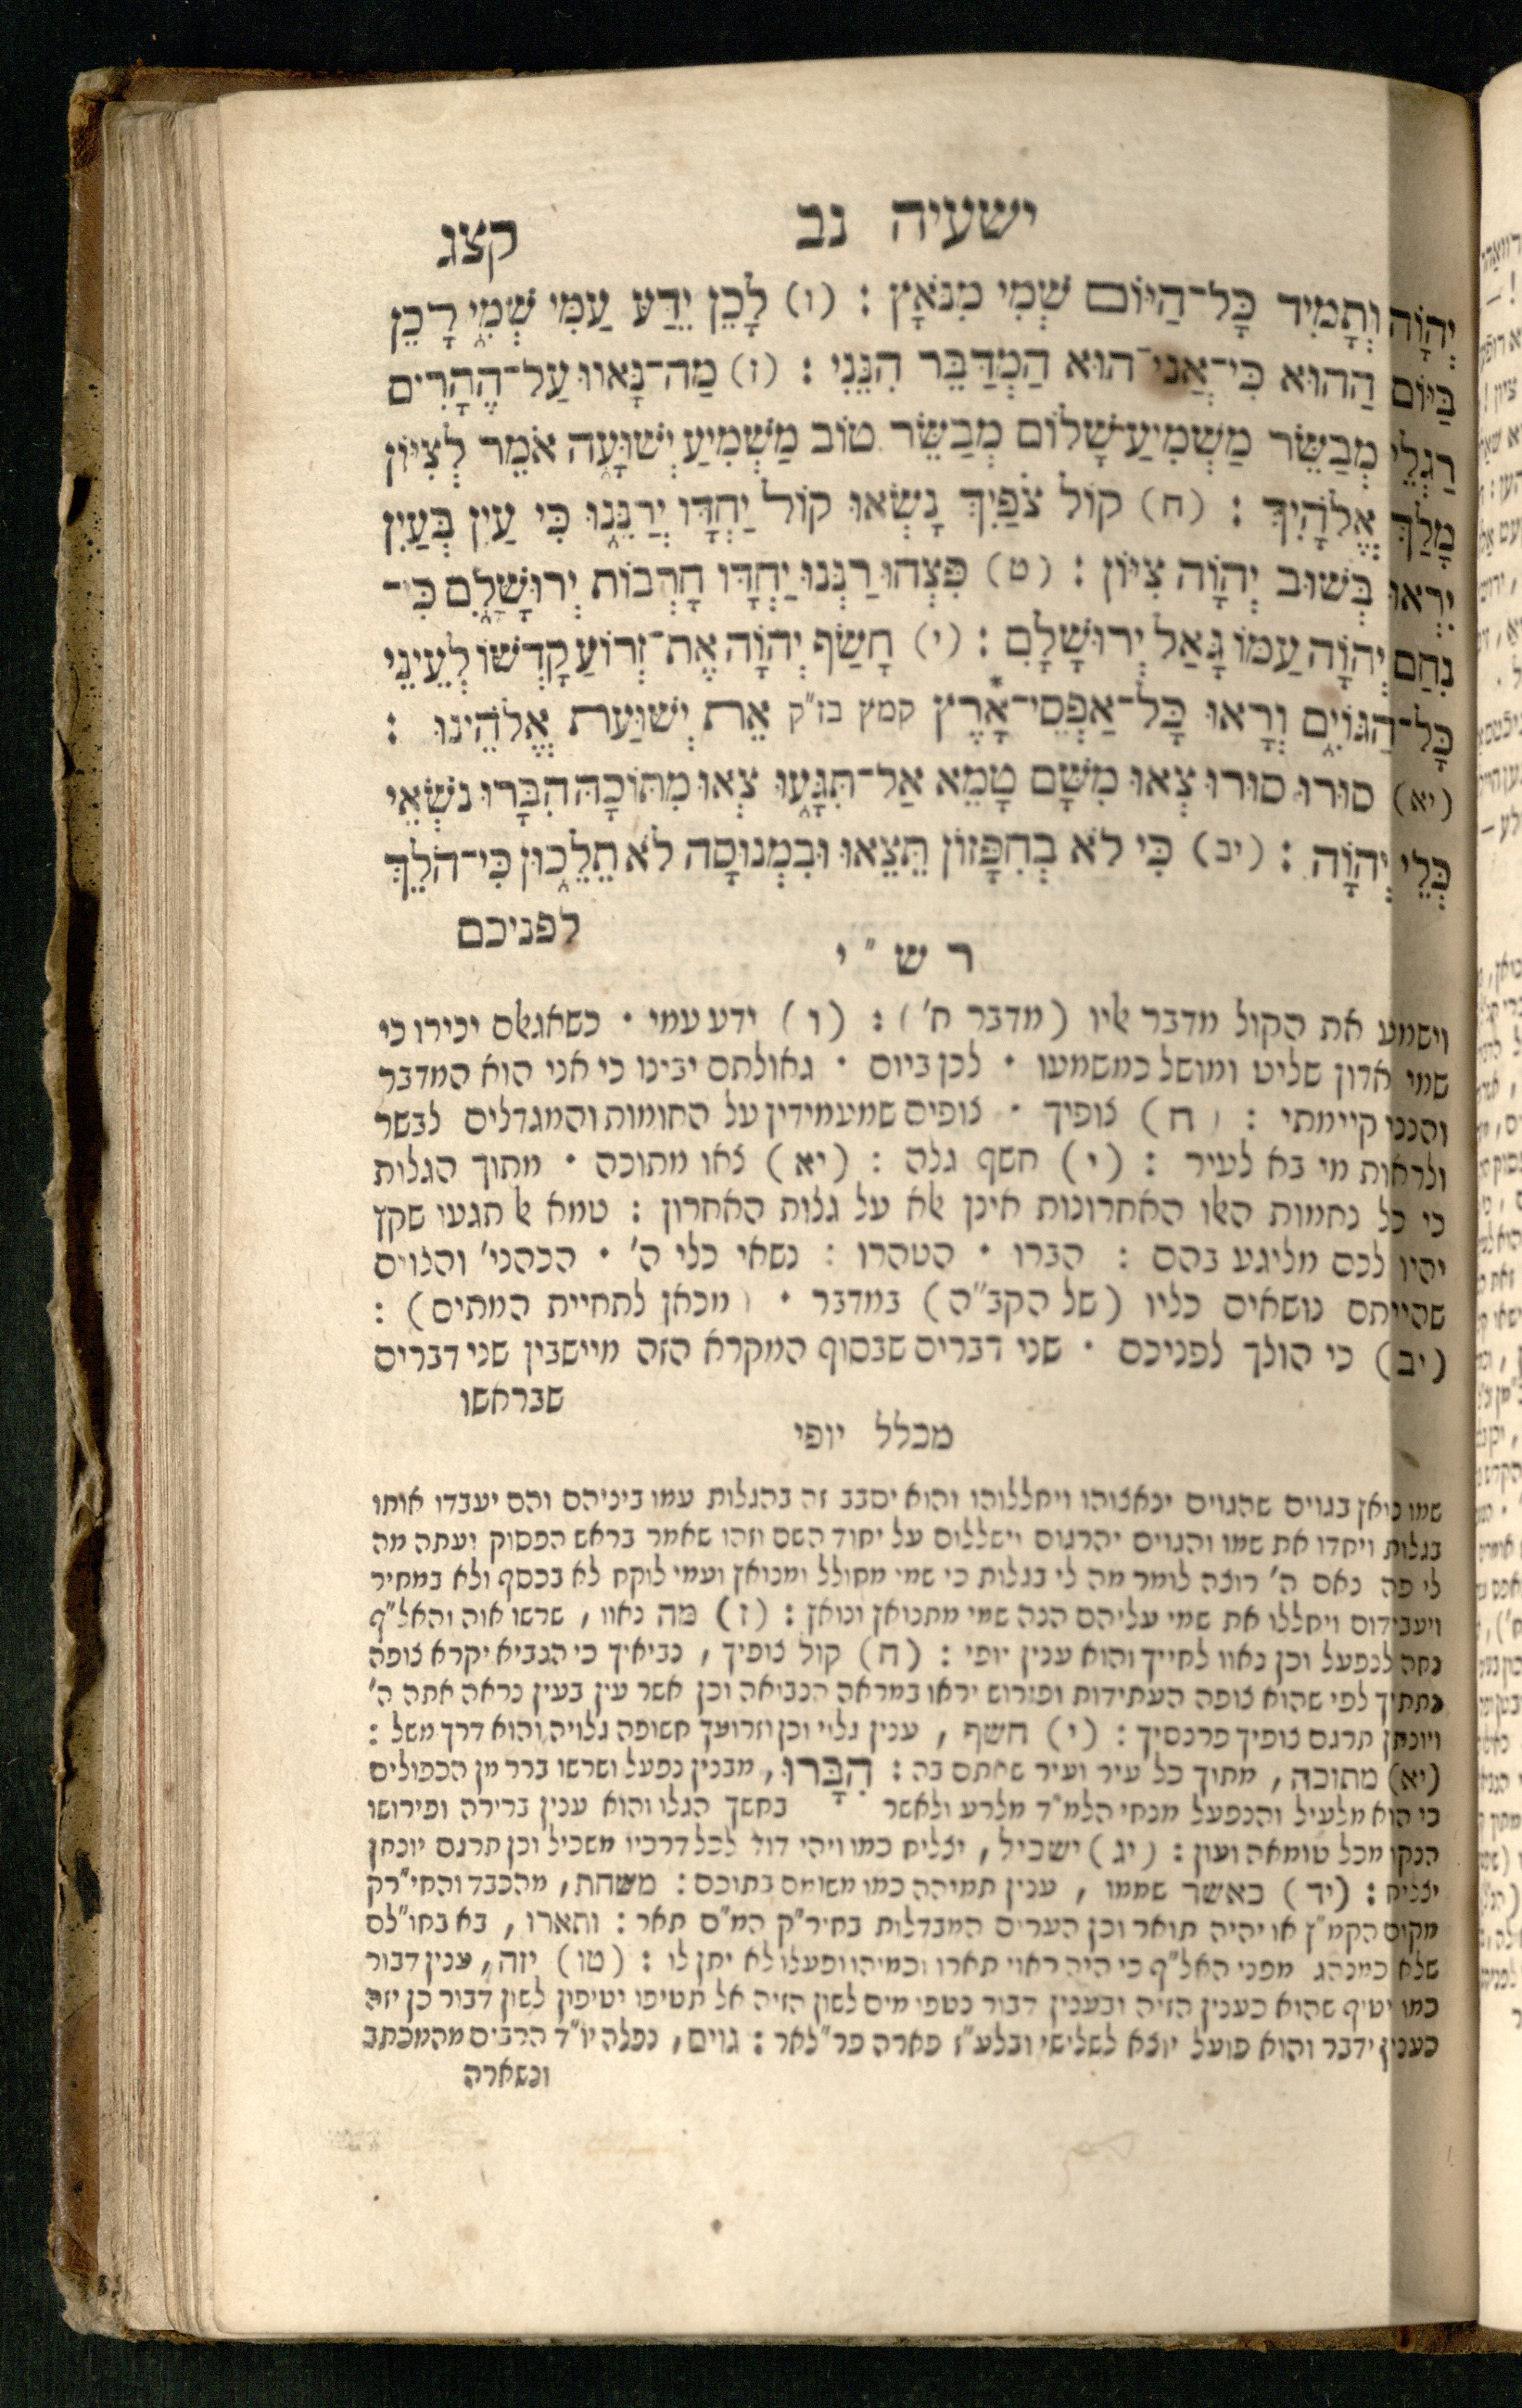 ישעיה נב
קצג
יְהוָֹה וְתָמִיד כָּל־הַיּוֹם שְׁמִי מִנֹּאָץ : (ו) לָכֵן יֵדַע עַמִּי שְׁמִי לָכֵן
בַּיּוֹם הַהוּא כִּי־אֲנִי־הוּא הַמְדַבֵּר הִנֵּנִי : (ז) מַה־נָּאווּ עַל־הֶהָרִים
רַגְלֵי מְבַשֵּׂר מַשְׁמִיעַ־שָׁלוֹם מְבַשֵּׂר טוֹב מַשְׁמִיעַ יְשׁוּעָה אֹמֵר לְצִיּוֹן
מָלַךְ אֱלֹהָיִךְ : (ח) קוֹל צֹפַיִךְ נָשְׂאוּ קוֹל יַחְדָּו יְרַנֵּנוּ כִּי עַיִן בְּעַיִן
יִרְאוּ בְּשׁוּב יְהוָֹה צִיּוֹן : (ט) פִּצְחוּ רַנְּנוּ יַחְדָּו חָרְבוֹת יְרוּשָׁלָםִ כִּי־
נִחַם יְהוָֹה עַמּוֹ גָּאַל יְרוּשָׁלָםִ : (י) חָשַׂף יְהוָֹה אֶת־זְרוֹעַ קָדְשׁוֹ לְעֵינֵי
כָּל־הַגּוֹיִם וְרָאוּ כָּל־אַפְסֵי־אָרֶץ קמץ בז"ק אֵת יְשׁוּעַת אֱלֹהֵינוּ :
(יא) סוּרוּ סוּרוּ צְאוּ מִשָּׁם טָמֵא אַל־תִּגָּעוּ צְאוּ מִתּוֹכָהּ הִבָּרוּ נֹשְׂאֵי
כְּלֵי יְהוָֹה : (יב) כִּי לֹא בְחִפָּזוֹן תֵּצֵאוּ וּבִמְנוּסָה לֹא תֵלֵכוּן כִּי־הֹלֵךְ
לפניכם
ר ש " י
וישמע את הקול מדבר אליו (מדבר ח') : (ו) ידע עמי • כשאגאלם יכירו כי
שמי אדון שליט ומושל כמשמעו • לכן ביום • גאולתם יבינו כי אני הוא המדבר
והנני קיימתי : (ח) צופיך • צופים שמעמידין על החומות והמגדלים לבשר
ולראות מי בא לעיר : (י) חשף גלה : (יא) צאו מתוכה • מתוך הגלות
כי כל נחמות האלו האחרונות אינן אלא על גלות האחרון : טמא אל תגעו שקץ
יהיו לכם מליגע בהם : הברו • הטהרו : נשאי כלי ה' • הכהני' והלוים
שהייתם נושאים כליו (של הקב"ה) במדבר • (מכאן לתחיית המתים) :
(יב) כי הולך לפניכם • שני דברים שבסוף המקרא הזה מיישבין שני דברים
שבראשו
מכלל יופי
שמו בגוים שהגוים ינאצוהו ויחללוהו והוא יסבב זה בהגלות עמו ביניהם והם יעבדו אותו
בגלות ויחדו את שמו והגוים יהרגום וישללום על יחוד השם וזהו שאמר בראש הפסוק ועתה מה
לי פה נאם ה' רוצה לומר מה לי בגלות כי שמי מחולל ומנואץ ועמי לוקח לא בכסף ולא במחיר
ויעבידום ויחללו את שמי עליהם הנה שמי מתנואץ ונואץ : (ז) מה נאוו , שרשו אוה והאל"ף
נחה לנפעל וכן נאוו לחייך והוא ענין יופי : (ח) קול צופיך , נביאיך כי הנביא יקרא צופה
נתתיך לפי שהוא צופה העתידות ופירוש יראו במראה הנבואה וכן אשר עין בעין נראה אתה ה'
ויונתן תרגם צופיך פרנסיך : (י) חשף , ענין גלוי וכן וזרועך חשופה גלויה והוא דרך משל :
(יא) מתוכה , מתוך כל עיר ועיר שאתם בה : הִבָּרוּ , מבנין נפעל ושרשו ברר מן הכפולים
כי הוא מלעיל והנפעל מנחי הלמ"ד מלרע ולאשר בחשך הגלו והוא ענין ברירה ופירושו
הנקו מכל טומאה ועון : (יג) ישכיל , יצליח כמו ויהי דוד לכל דרכיו משכיל וכן תרגם יונתן
יצליח : (יד) כאשר שממו , ענין תמיהה כמו משומם בתוכם : משחת , מהכבד והחי"רק
מקום הקמ"ץ או יהיה תואר וכן הערים המבדלות בחיר"ק המ"ם תאר : ותארו , בא בחו"לם
שלא כמנהג מפני האל"ף כי היה ראוי תארו וכמיהו ופעלו לא יתן לו : (טו) יזה , ענין דבור
כמו יטיף שהוא כענין הזיה ובענין דבור כטפי מים לשון הזיה אל תטיפו יטיפון לשון דבור כן יזה
כענין ידבר והוא פועל יוצא לשלישי ובלע"ז פארה פר"לאר : גוים , נפלה יו"ד הרבים מהמכתב
ונשארה